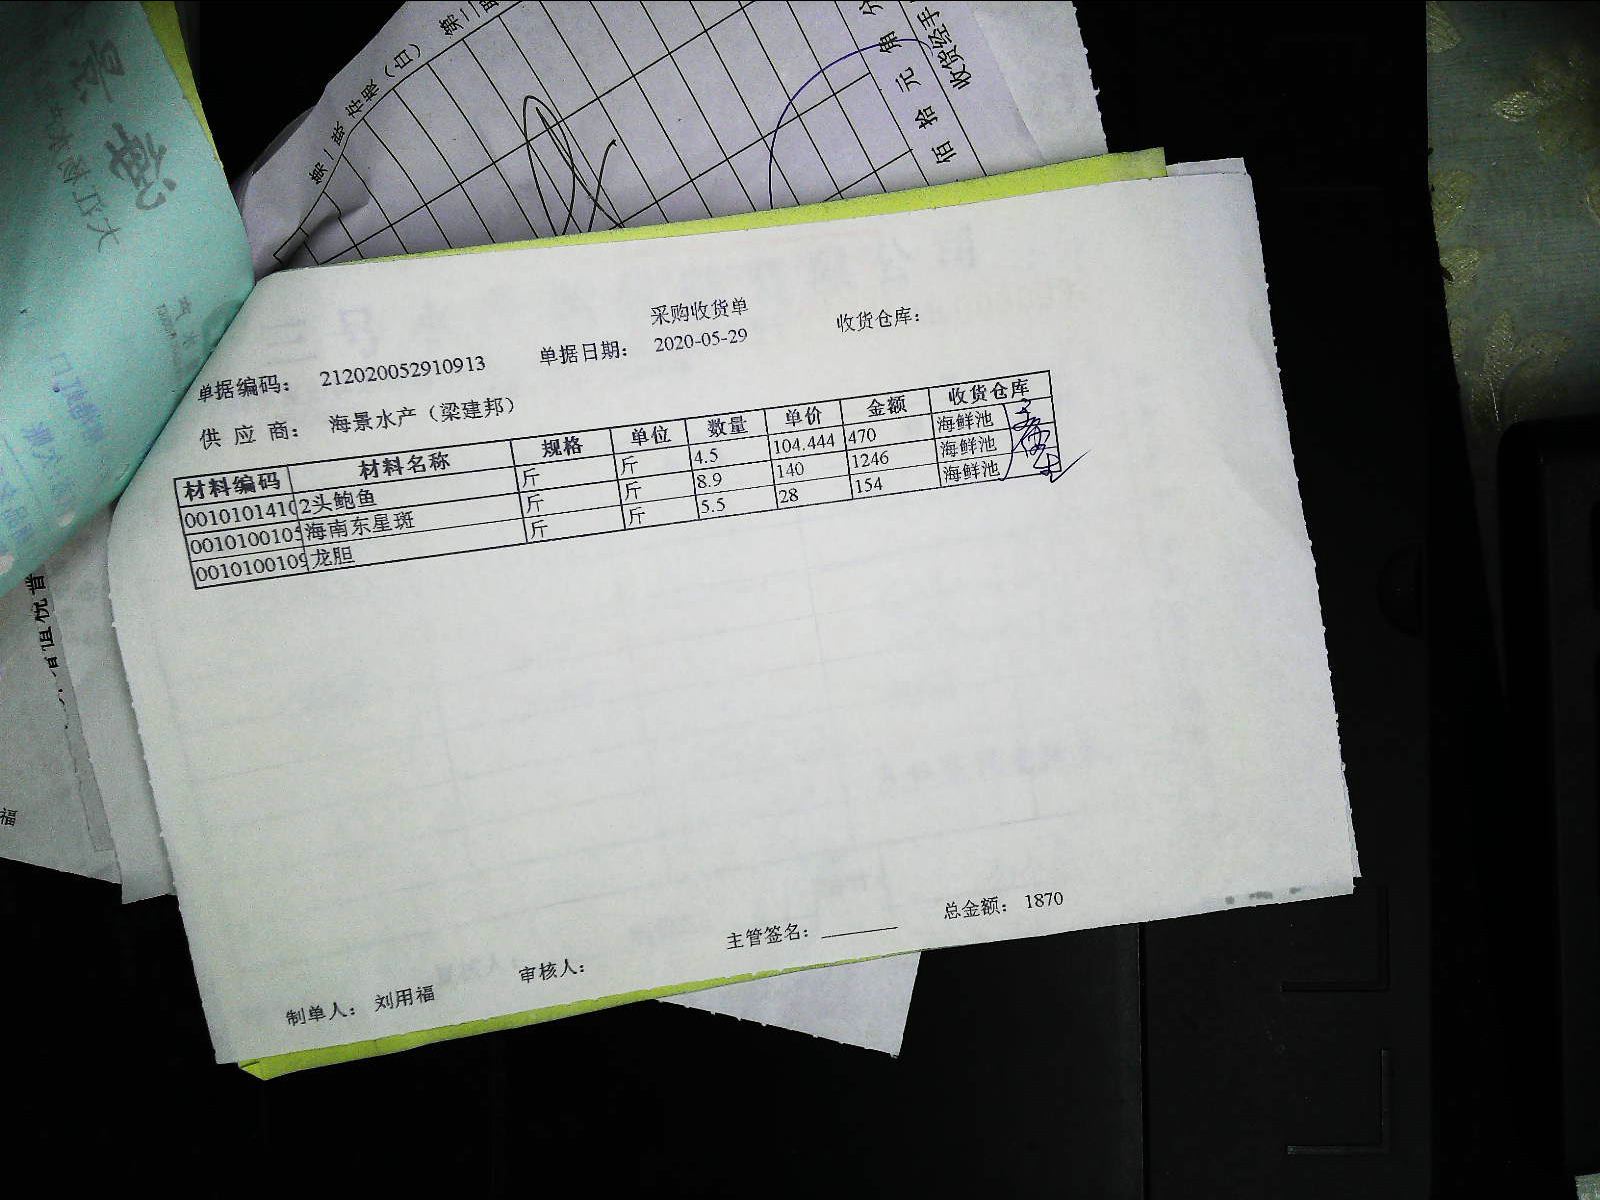 第二联
第一联 存根（白）
佰 拾 元 角 分
收货经手
采购收货单
单据编码： 212020052910913 单据日期： 2020-05-29 收货仓库：
供 应 商： 海景水产（梁建邦）
材料编码 材料名称 规格 单位 数量 单价 金额 收货仓库
0010101410 2头鲍鱼 斤 斤 4.5 104.444 470 海鲜池
001010010 海南东星斑 斤 斤 8.9 140 1246 海鲜池
001010010 龙胆 斤 斤 5.5 28 154 海鲜池
制单人： 刘用福 审核人： 主管签名： 总金额： 1870
福